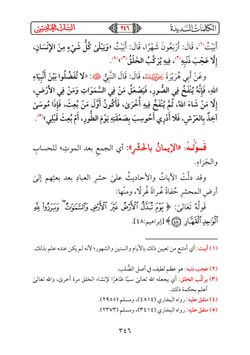 الكلمات السديدة
٣٤٦
أَبَيْتُ(١)، قال: أَرْبَعُونَ شَهْرًا، قَالَ: أَبَيْتُ «وَيَبْلَى كُلُّ شَيْءٍ مِنَ الإِنْسَانِ،
إِلَّا عَجْبَ ذَنَبِهِ(٢)، فِيهِ يُرَكَّبُ الخَلْقُ(٣)»(٤).
وعَنْ أَبِي هُرَيْرَةَ، قَالَ: قال النَّبِيُّ ﷺ: «لَا تُفَضِّلُوا بَيْنَ أَنْبِيَاءِ
اللهِ، فَإِنَّهُ يُنْفَخُ فِي الصُّورِ، فَيَصْعَقُ مَنْ فِي السَّمَوَاتِ وَمَنْ فِي الأَرْضِ،
إِلَّا مَنْ شَاءَ اللهُ، ثُمَّ يُنْفَخُ فِيهِ أُخْرَى، فَأَكُونُ أَوَّلَ مَنْ بُعِثَ، فَإِذَا مُوسَى
آخِذٌ بِالعَرْشِ، فَلَا أَدْرِي أَحُوسِبَ بِصَعْقَتِهِ يَوْمَ الطُّورِ، أَمْ بُعِثَ قَبْلِي»(٥).
قـولُـهُ: «الإيمانُ بالحشْرِ»: أي الجمعِ بعد الموتِ؛ للحسابِ
والجَزاءِ.
وقد دلَّت الآياتُ والأحاديثُ على حشرِ العبادِ بعد بعثِهم إلى
أرضِ المحشرِ حُفاةً عُراةً غُرلًا، ومنْها:
قولُهُ تعالى: ﴿ يَوْمَ تُبَدَّلُ الْأَرْضُ غَيْرَ الْأَرْضِ وَالسَّمَوَاتُ وَبَرَزُوا لِلَّهِ
الْوَاحِدِ الْقَهَّارِ ﴾ [إبراهيم: ٤٨].
(١) أبيت: أي أمتنع من تعيين ذلك بالأيام والسنين والشهور؛ لأنه لم يكن عنده علم بذلك.
(٢) عجب ذنبه: هو عظم لطيف في أصل الصُّلب.
(٣) يركَّب الخلق: أي يجعله الله تعالى سببًا ظاهرًا؛ لإنشاء الخلق مرة أخرى، والله تعالى
أعلم بحكمة ذلك.
(٤) متفق عليه: رواه البخاري (٤٨١٤)، ومسلم (٢٩٥٥).
(٥) متفق عليه: رواه البخاري (٣٤١٤)، ومسلم (٢٣٧٣).
٣٤٦